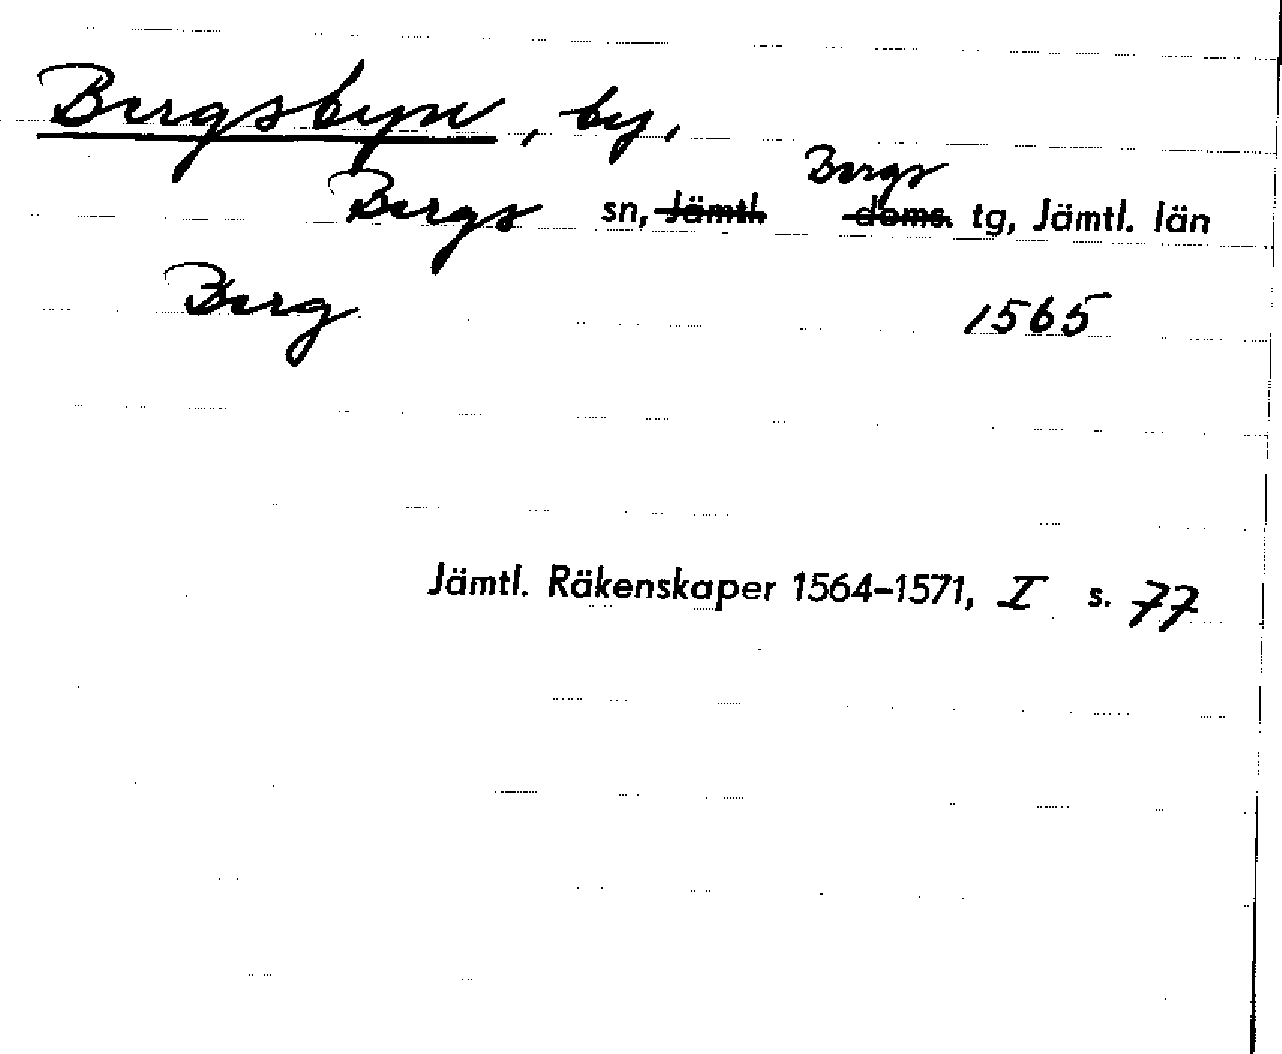 Bergsbyn, by,
Bergs sn, Jämtl. Bergs doms. tg, Jämtl. län
Berg 1565
Jämtl. Räkenskaper 1564–1571, I s. 77